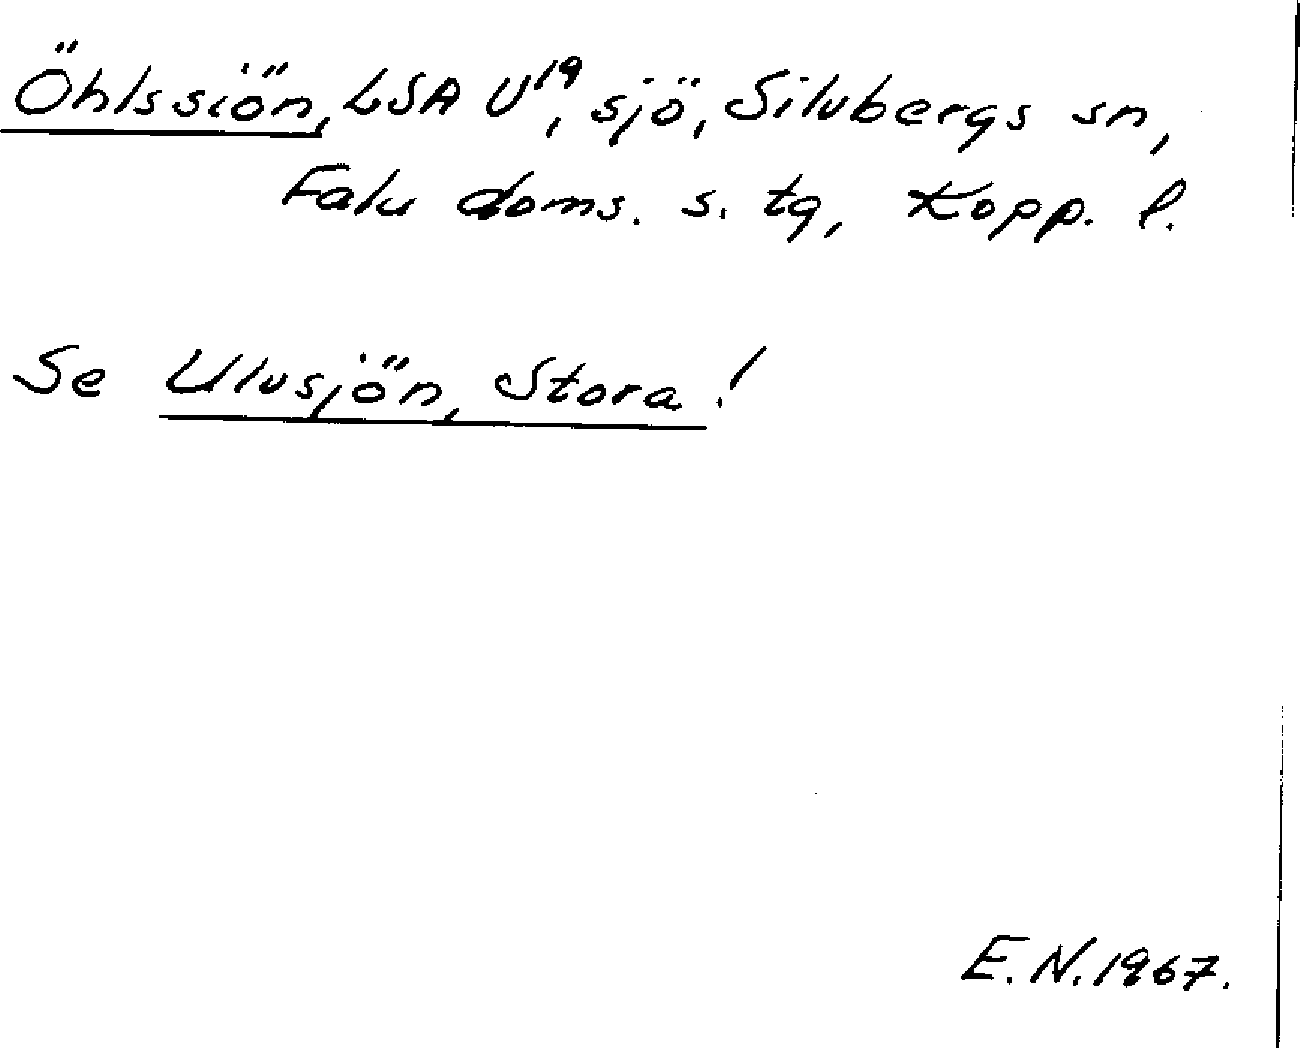 Öhlssiön, LSA U¹⁹, sjö, Silvbergs sn,
Falu doms. s. tg, Kopp. l.
Se Ulvsjön, Stora!
E.N. 1967.